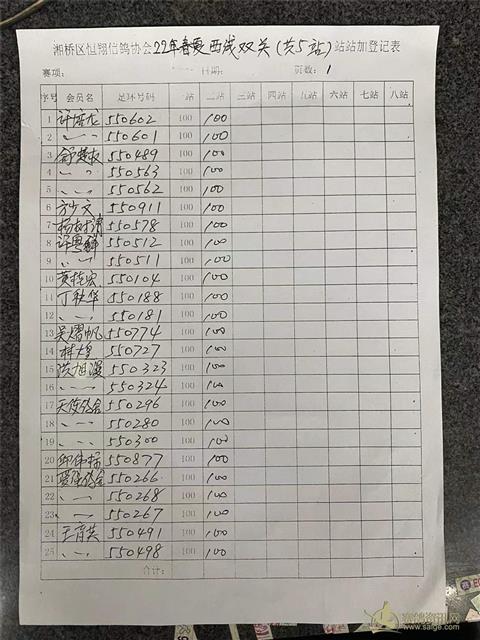 湘桥区恒翔信鸽协会22年春夏西线双关(共5站)站站加登记表
赛项: 日期: 页数: 1
序号 会员名 足环号码 一站 二站 三站 四站 五站 六站 七站 八站
1 许培龙 550602 100 100
2 〃 550601 100 100
3 550489 100 100
4 〃 550563 100 100
5 〃 550562 100 100
6 方少文 550911 100 100
7 550578 100 100
8 550512 100 100
9 〃 550511 100 100
10 550104 100 100
11 丁秋华 550188 100 100
12 〃 550181 100 100
13 550774 100 100
14 550727 100 100
15 550323 100 100
16 〃 550324 100 100
17 550296 100 100
18 〃 550280 100 100
19 〃 550300 100 100
20 550877 100 100
21 550266 100 100
22 〃 550268 100 100
23 〃 550267 100 100
24 王育英 550491 100 100
25 〃 550498 100 100
合计:
赛鸽资讯网
www.saige.com